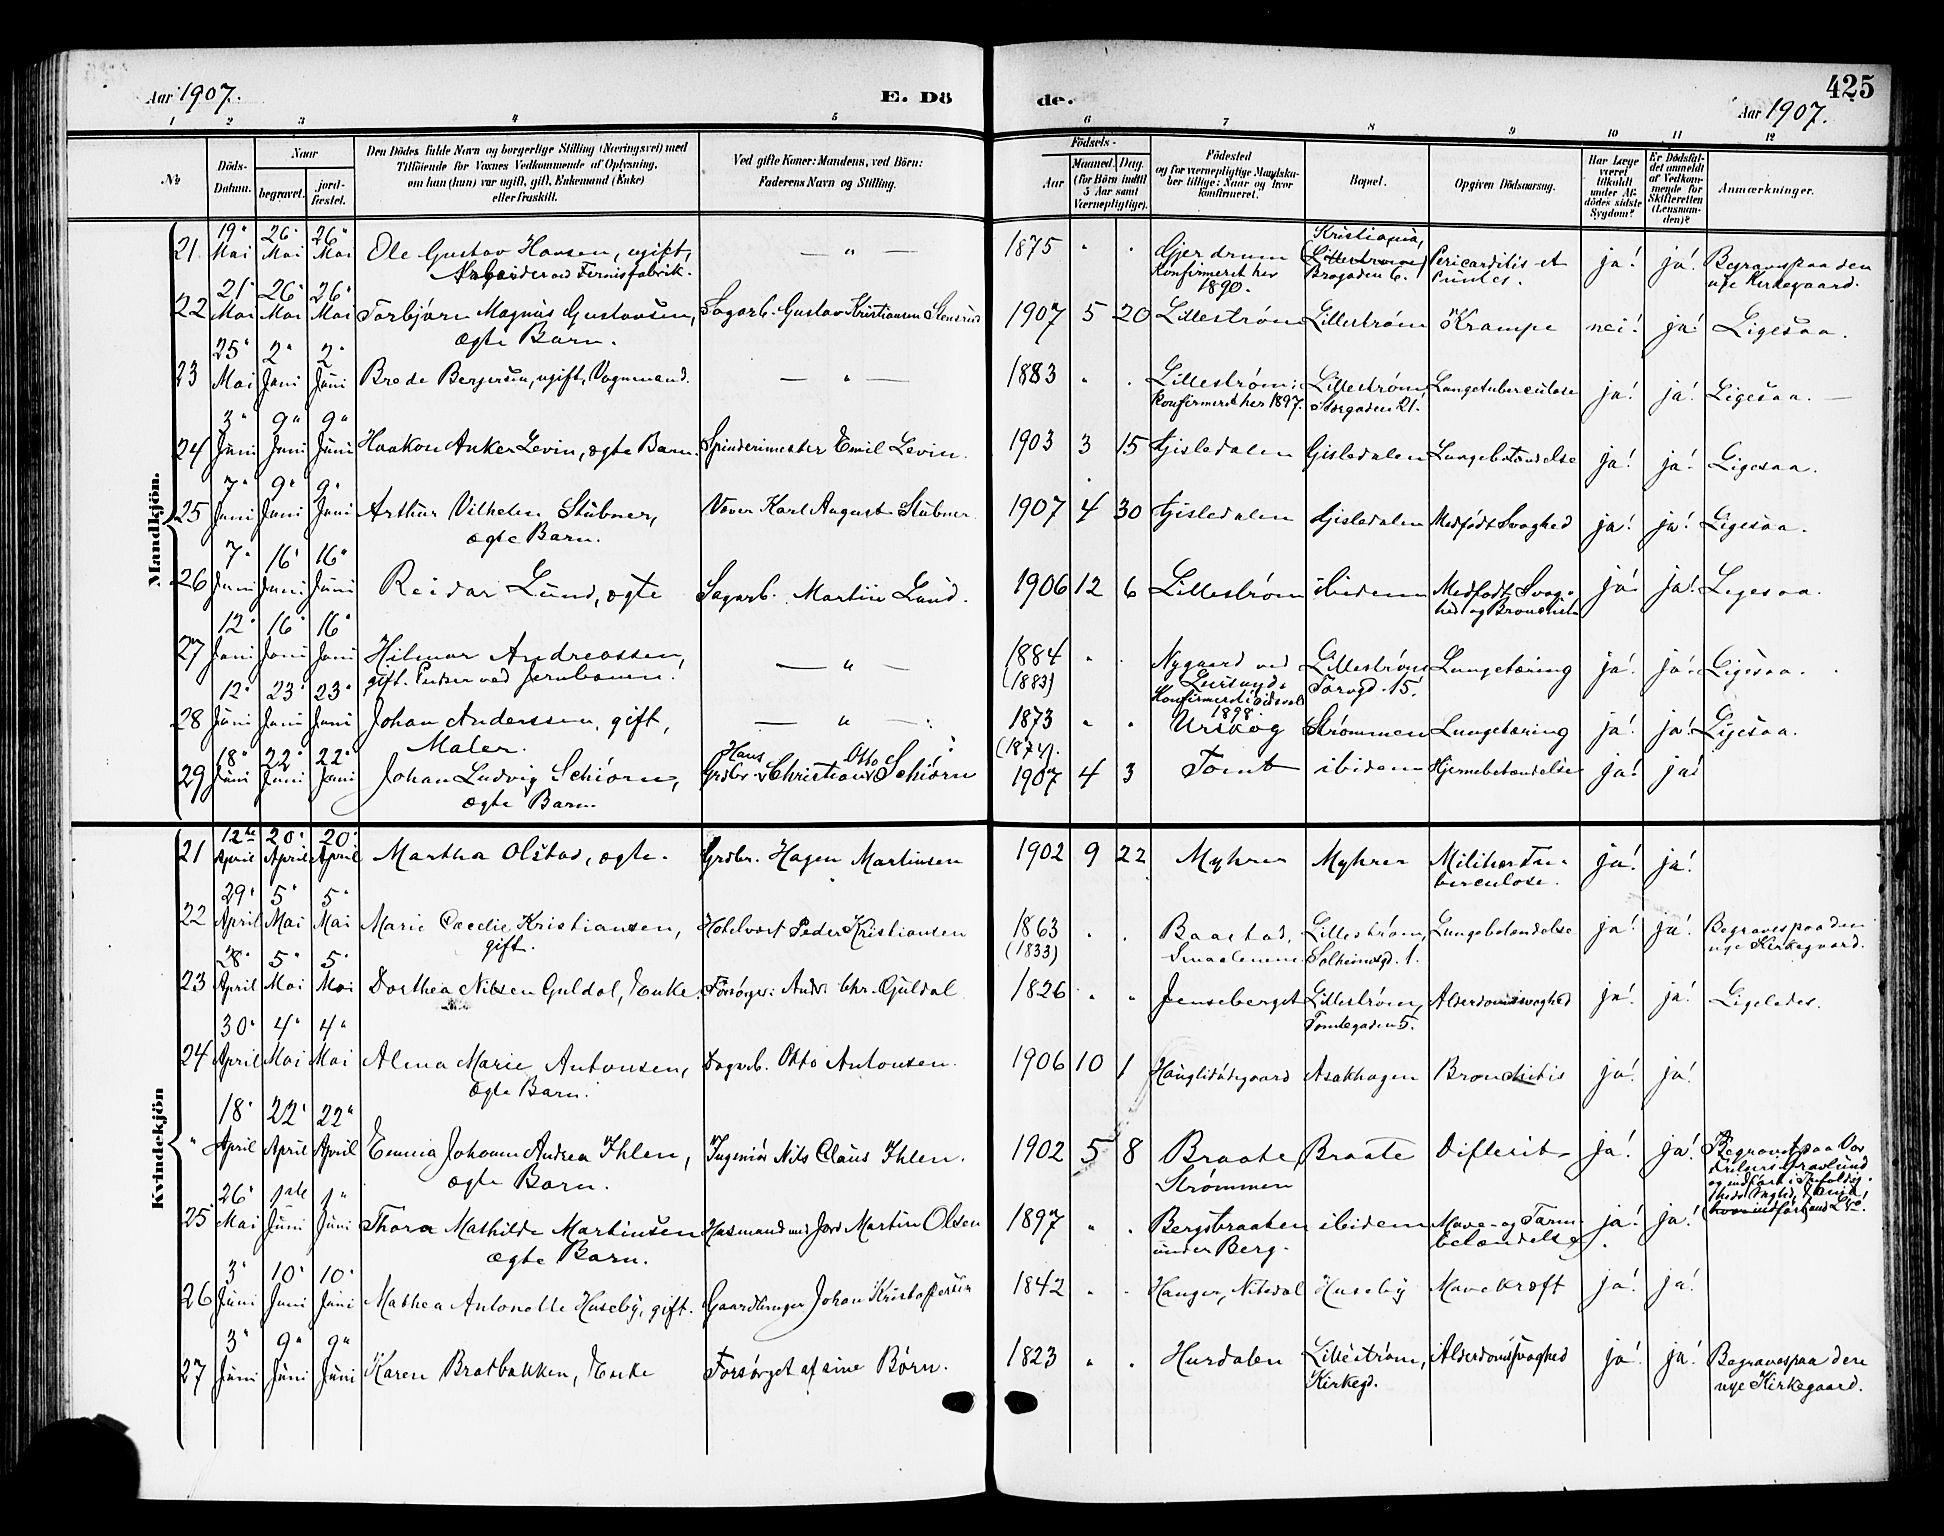 425
Aar 1907.
E. Dö
de.
Aar 1907.
1 2 3 4 5 6 7 8 9 10 11 12
No
Döds-Datum.
Naar
begravet.
jord-fæstet.
Den Dödes fulde Navn og borgerlige Stilling (Næringsvei) med
Tilföiende for Voxnes Vedkommende af Oplysning,
om han (hun) var ugift, gift, Enkemand (Enke)
eller fraskilt.
Ved gifte Koner: Mandens, ved Börn:
Faderens Navn og Stilling.
Födsels-
Aar
Maaned. Dag.
(for Börn indtil 5 Aar samt Værnepligtige).
Födested
og for værnepligtige Mandskaber tillige: Naar og hvor konfirmeret.
Bopæl.
Opgiven Dödsaarsag.
Har Læge været tilkaldt under Afdödes sidste Sygdom?
Er Dödsfaldet anmeldt af Vedkommende for Skifteretten (Lensmanden)?
Anmærkninger.
Mandkjön.
21 19' Mai 26' Mai 26' Mai Ole Gustav Hansen, ugift, — " — 1875 " " Gjerdrum Kristiania, Pericarditis et ja! ja! Begravespaa den
Arbeider ved Fernisfabrik. Konfirmeret her 1890. (Lillestrøm) Brogaden 6. nye Kirkegaard.
22 21' Mai 26' Mai 26' Mai Torbjørn Magnus Gustavsen, Sagarb. Gustav Kristiansen Stensrud 1907 5 20 Lillestrøm Lillestrøm Krampe nei! ja! Ligesaa.
ægte Barn.
23 25' Mai 2' Juni 2' Juni Brede Bergersen, ugift, Vognmand. — " — 1883 " " Lillestrøm; Lillestrøm, Lungetuberculose ja! ja! Ligesaa. —
Konfirmeret her 1897. Storgaden 21.
24 3' Juni 9' Juni 9' Juni Haakon Anker Levin, ægte Barn. Spinderimester Emil Levin. 1903 3 15 Gisledalen Gisledalen Lungebetændelse ja! ja! Ligesaa.
25 7' Juni 9' Juni 9' Juni Arthur Vilhelm Stübner, Væver Karl August Stübner 1907 4 30 Gisledalen Gisledalen Medfødt Svaghed ja! ja! Ligesaa.
ægte Barn.
26 7' Juni 16' Juni 16' Juni Reidar Lund, ægte Sagarb. Martin Lund. 1906 12 6 Lillestrøm ibidem Medfødt Svaghed og Bronchit ja! ja! Ligesaa.
27 12' Juni 16' Juni 16' Juni Hilmar Andreassen, — " — 1884 " " Nygaard ved Lillestrøm Lungetæring ja! ja! Ligesaa.
gift. Pudser ved Jernbanen. (1883) Konfirmeret i Eidsvold 1898 Torvgd. 15.
28 12' Juni 23' Juni 23' Juni Johan Anderssen, gift, — " — 1873 " " Urskog Strømmen Lungetæring ja! ja! Ligesaa.
Maler. (1874).
29 18' Juni 22' Juni 22' Juni Johan Ludvig Schiörn, Grdbr. Hans Christian Otto Schiörn 1907 4 3 Tomt ibidem Hjernebetændelse ja! ja!
ægte Barn.
Kvindekjön
21 12te April 20' April 20' April Martha Olstad, ægte. Grdbr. Hagen Martinsen 1902 9 22 Myhrer Myhrer Miliær Tuberculose. ja! ja!
22 29' April 5' Mai 5' Mai Marie Cæcilie Kristiansen, Hotelvært Peder Kristiansen 1863 " " Baastad, Lillestrøm, Lungebetændelse ja! ja! Begravespaa den
gift. (1833) Smaalenene Solheimsgd. 1. nye Kirkegaard.
23 28' April 5' Mai 5' Mai Dorthea Nilsen Guldal, Enke. Forsørger: Andr. Chr. Guldal 1826 " " Jenseberget Lillestrøm, Alderdomssvaghed ja! ja! Ligeledes.
Tomtegaden 5.
24 30' April 4' Mai 4' Mai Alma Marie Antonsen, Dagarb. Otto Antonsen. 1906 10 1 Hauglidødegaard Asakhagen Bronchitis ja! ja!
ægte Barn.
" 18' April 22' April 22' April Emma Johanne Andrea Ihlen, Ingeniör Nils Claus Ihlen. 1902 5 8 Braate, Braate Difterit ja! ja! Begravet paa Vor
ægte Barn. Strømmen Frelsers Gravlund
og indført i
25 26' Mai 1ste Juni 1' Juni Thora Mathilde Martinsen Husmand med Jord Martin Olsen 1897 " " Bergsbraaten ibidem Mave- og Tarmbetændelse ja! ja!
ægte Barn. under Berg.
26 3' Juni 10' Juni 10' Juni Mathea Antonette Huseby, gift. Gaardbruger Johan Kristoffersen 1842 " " Hauger, Nitedal Huseby Mavekræft ja! ja!
27 3' Juni 9' Juni 9' Juni Karen Bratbakken, Enke Forsørget af sine Børn. 1823 " " Hurdalen Lillestrøm, Alderdomssvaghed ja! ja! Begravespaa den
Kirkegd. nye Kirkegaard.